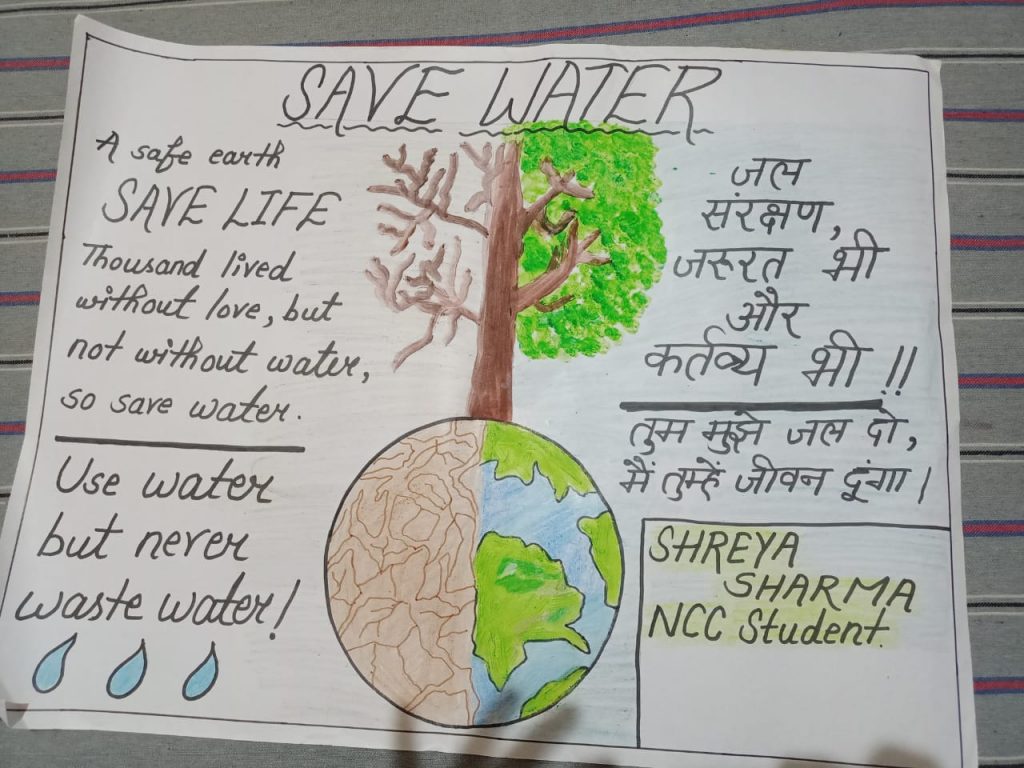 SAVE WATER
A safe earth
SAVE LIFE
Thousand lived
without love, but
not without water,
so save water.
Use water
but never
waste water!
जल
संरक्षण,
जरूरत भी
और
कर्तव्य भी !!
तुम मुझे जल दो,
मैं तुम्हें जीवन दूंगा।
SHREYA
SHARMA
NCC Student.